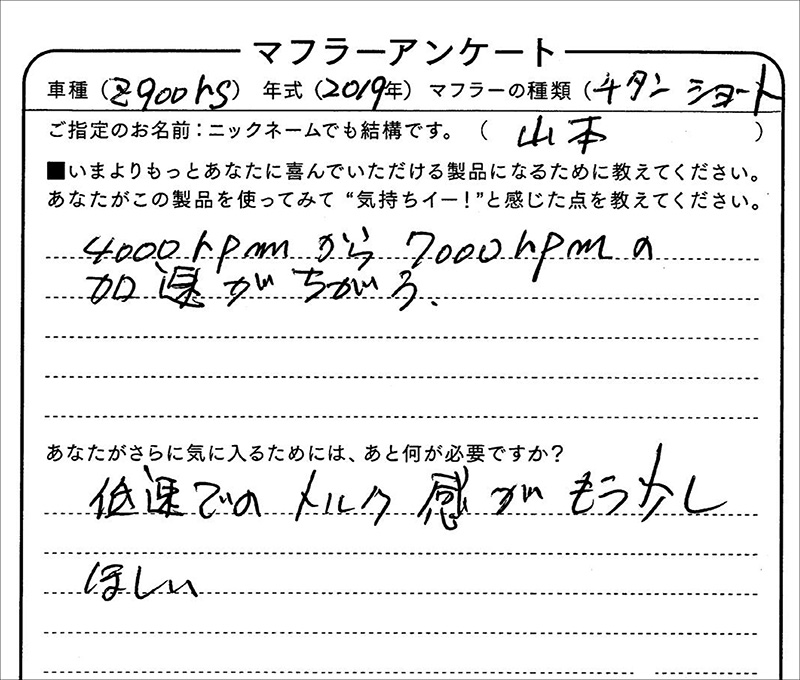 マフラーアンケート
車種（z900rs） 年式（2019年） マフラーの種類（チタンショート
ご指定のお名前：ニックネームでも結構です。（ 山本 ）
■いまよりもっとあなたに喜んでいただける製品になるために教えてください。
あなたがこの製品を使ってみて“気持ちイー！”と感じた点を教えてください。
4000rpmから7000rpmの
加速がちがう.
あなたがさらに気に入るためには、あと何が必要ですか？
低速でのトルク感がもう少し
ほしい